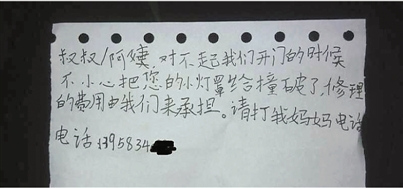 叔叔/阿姨,对不起我们开门的时候
不小心把您的小灯罩给撞破了,修理
的费用由我们来承担。请打我妈妈电话
电话 1395834